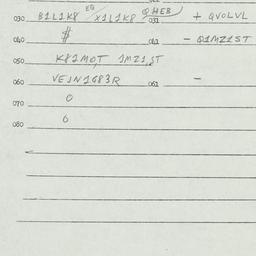 030 B1L1K8 EQ X1L1K8 QHEB 031 + QVOLVL
040 $ 041 - Q1MZ1ST
050 K81MOT 1MZ1,ST
060 VEJN1G83R 061 -
070 0
080 0